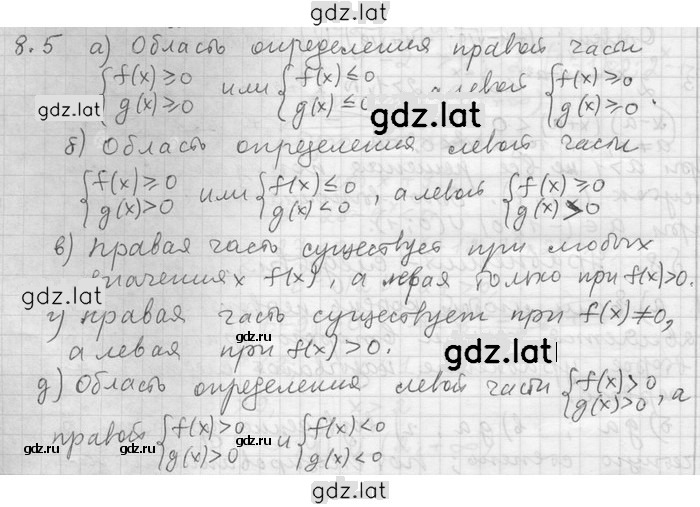 gdz.lat
8.5 а) Область определения правой части
{f(x) ≥ 0 g(x) ≥ 0 или {f(x) ≤ 0 g(x) ≤ 0 левой {f(x) ≥ 0 g(x) ≥ 0.
gdz.lat
gdz.lat
б) Область определения левой части
{f(x) ≥ 0 g(x) > 0 или {f(x) ≤ 0 g(x) < 0, а левой {f(x) ≥ 0 g(x) > 0
в) правая часть существует при любых
значениях f(x), а левая только при f(x)>0.
gdz.lat
г) правая часть существует при f(x) ≠ 0,
gdz.lat
а левая при f(x) > 0.
gdz.lat
д) Область определения левой части {f(x) > 0 g(x) > 0, а
правой {f(x) > 0 g(x) > 0 и {f(x) < 0 g(x) < 0
gdz.lat
gdz.lat
gdz.lat